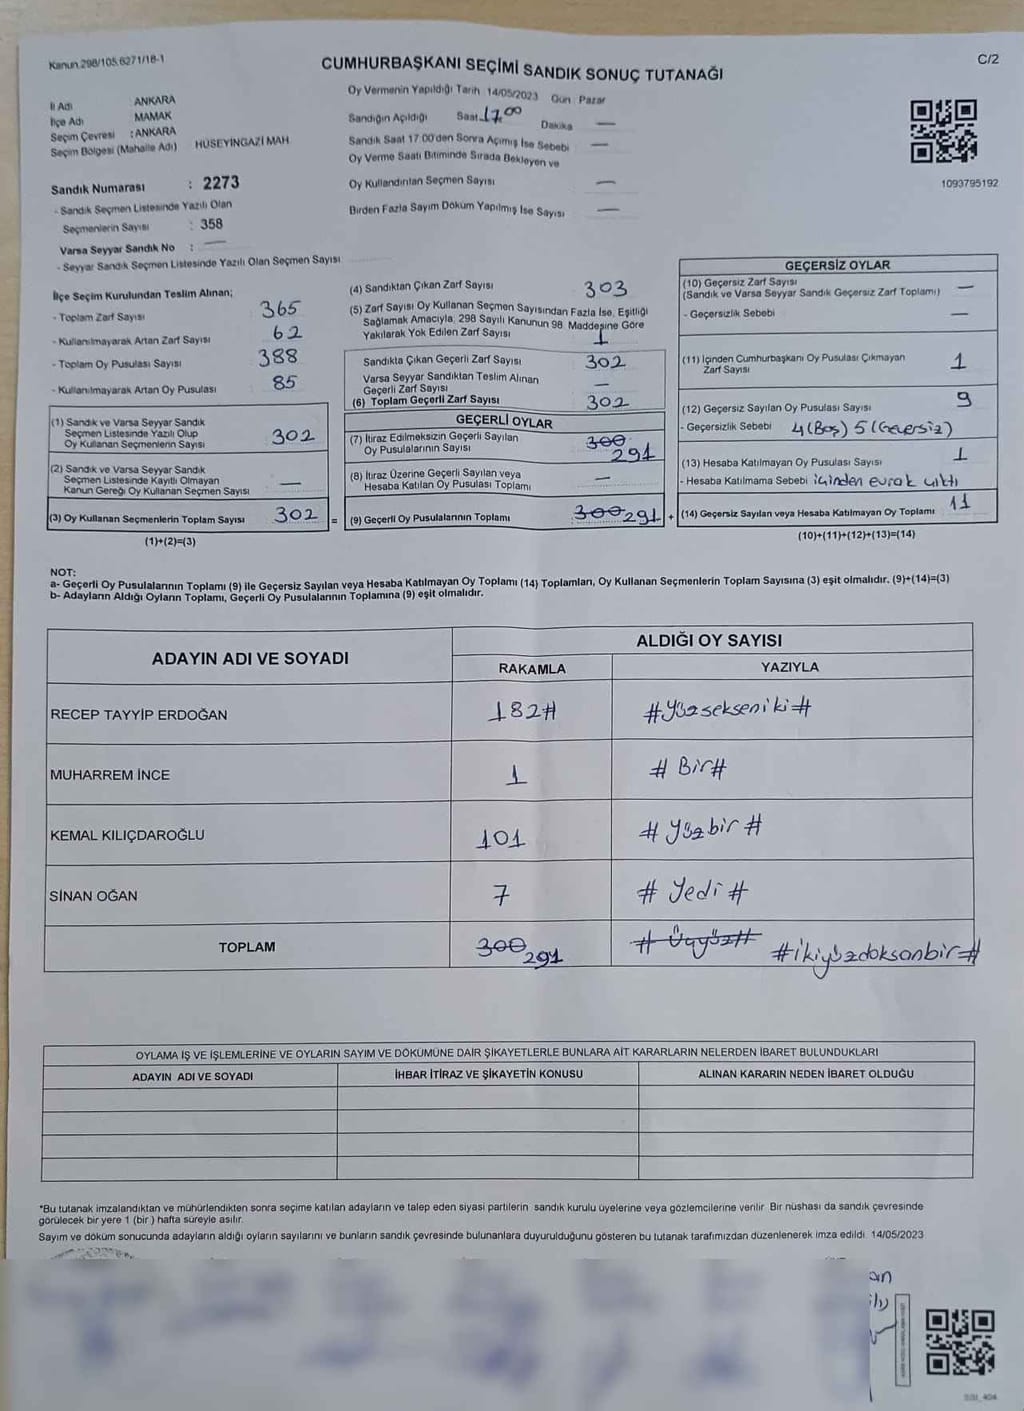 Kanun.298/105,6271/18-1
CUMHURBAŞKANI SEÇİMİ SANDIK SONUÇ TUTANAĞI
C/2
İl Adı ANKARA
İlçe Adı MAMAK
Seçim Çevresi : ANKARA
Seçim Bölgesi (Mahalle Adı) HÜSEYİNGAZİ MAH
Oy Vermenin Yapıldığı Tarih 14/05/2023 Gün Pazar
Sandığın Açıldığı Saat 17.00 Dakika —
Sandık Saat 17:00'den Sonra Açımış İse Sebebi —
Oy Verme Saati Bitiminde Sırada Bekleyen ve
Oy Kullandırılan Seçmen Sayısı —
Birden Fazla Sayım Döküm Yapılmış İse Sayısı —
1093795192
Sandık Numarası : 2273
- Sandık Seçmen Listesinde Yazılı Olan
Seçmenlerin Sayısı : 358
Varsa Seyyar Sandık No : —
- Seyyar Sandık Seçmen Listesinde Yazılı Olan Seçmen Sayısı
İlçe Seçim Kurulundan Teslim Alınan;
- Toplam Zarf Sayısı 365
- Kullanılmayarak Artan Zarf Sayısı 62
- Toplam Oy Pusulası Sayısı 388
- Kullanılmayarak Artan Oy Pusulası 85
(1) Sandık ve Varsa Seyyar Sandık
Seçmen Listesinde Yazılı Olup
Oy Kullanan Seçmenlerin Sayısı 302
(2) Sandık ve Varsa Seyyar Sandık
Seçmen Listesinde Kayıtlı Olmayan
Kanun Gereği Oy Kullanan Seçmen Sayısı —
(3) Oy Kullanan Seçmenlerin Toplam Sayısı 302 =
(1)+(2)=(3)
(4) Sandıktan Çıkan Zarf Sayısı 303
(5) Zarf Sayısı Oy Kullanan Seçmen Sayısından Fazla İse, Eşitliği
Sağlamak Amacıyla, 298 Sayılı Kanunun 98. Maddesine Göre
Yakılarak Yok Edilen Zarf Sayısı 1
Sandıkta Çıkan Geçerli Zarf Sayısı 302
Varsa Seyyar Sandıktan Teslim Alınan
Geçerli Zarf Sayısı —
(6) Toplam Geçerli Zarf Sayısı 302
GEÇERLİ OYLAR
(7) İtiraz Edilmeksizin Geçerli Sayılan 300
Oy Pusulalarının Sayısı 291
(8) İtiraz Üzerine Geçerli Sayılan veya
Hesaba Katılan Oy Pusulası Toplamı —
(9) Geçerli Oy Pusulalarının Toplamı 300 291 +
GEÇERSİZ OYLAR
(10) Geçersiz Zarf Sayısı —
(Sandık ve Varsa Seyyar Sandık Geçersiz Zarf Toplamı)
- Geçersizlik Sebebi —
(11) İçinden Cumhurbaşkanı Oy Pusulası Çıkmayan
Zarf Sayısı 1
(12) Geçersiz Sayılan Oy Pusulası Sayısı 9
- Geçersizlik Sebebi 4 (Boş) 5 (Geçersiz)
(13) Hesaba Katılmayan Oy Pusulası Sayısı 1
- Hesaba Katılmama Sebebi içinden evrak çıktı
(14) Geçersiz Sayılan veya Hesaba Katılmayan Oy Toplamı 11
(10)+(11)+(12)+(13)=(14)
NOT:
a- Geçerli Oy Pusulalarının Toplamı (9) ile Geçersiz Sayılan veya Hesaba Katılmayan Oy Toplamı (14) Toplamları, Oy Kullanan Seçmenlerin Toplam Sayısına (3) eşit olmalıdır. (9)+(14)=(3)
b- Adayların Aldığı Oyların Toplamı, Geçerli Oy Pusulalarının Toplamına (9) eşit olmalıdır.
ADAYIN ADI VE SOYADI
ALDIĞI OY SAYISI
RAKAMLA YAZIYLA
RECEP TAYYİP ERDOĞAN 182# #Yüzsekseniki#
MUHARREM İNCE 1 # Bir#
KEMAL KILIÇDAROĞLU 101 # Yüzbir #
SİNAN OĞAN 7 # Yedi #
TOPLAM 300 291 # Üçyüz# #ikiyüzdoksanbir#
OYLAMA İŞ VE İŞLEMLERİNE VE OYLARIN SAYIM VE DÖKÜMÜNE DAİR ŞİKAYETLERLE BUNLARA AİT KARARLARIN NELERDEN İBARET BULUNDUKLARI
ADAYIN ADI VE SOYADI İHBAR İTİRAZ VE ŞİKAYETİN KONUSU ALINAN KARARIN NEDEN İBARET OLDUĞU
*Bu tutanak imzalandıktan ve mühürlendikten sonra seçime katılan adayların ve talep eden siyasi partilerin sandık kurulu üyelerine veya gözlemcilerine verilir. Bir nüshası da sandık çevresinde
görülecek bir yere 1 (bir) hafta süreyle asılır.
Sayım ve döküm sonucunda adayların aldığı oyların sayılarını ve bunların sandık çevresinde bulunanlara duyurulduğunu gösteren bu tutanak tarafımızdan düzenlenerek imza edildi. 14/05/2023